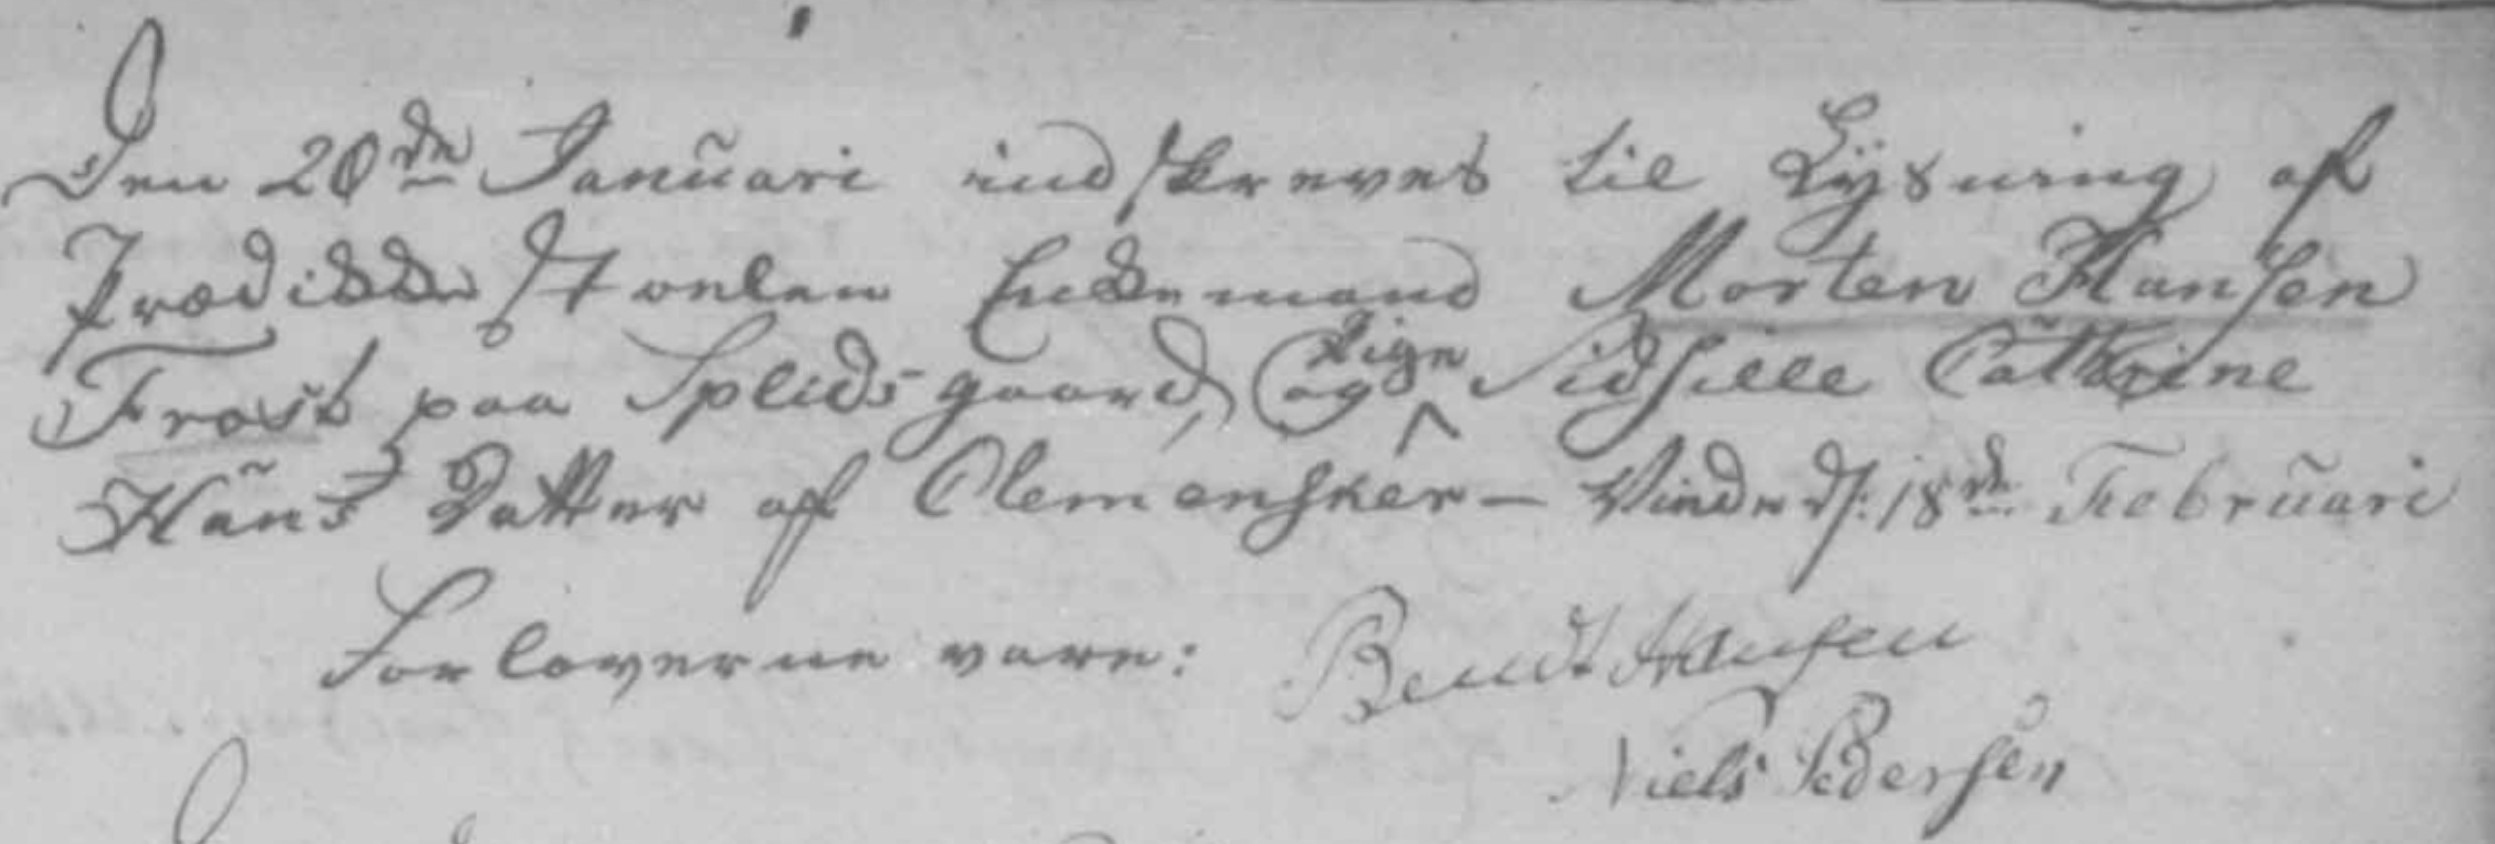 Den 20de Januari indskreves til Lysning af
Prædikkestoelen Enkemand Morten Hansen
Frost paa Splidsgaard, og ^Pige Sidsille Cathrine
Hans Datter af Clemensker – Viede d: 18de Februari
Forloverne vare: Bendt Hansen
Niels Pedersen